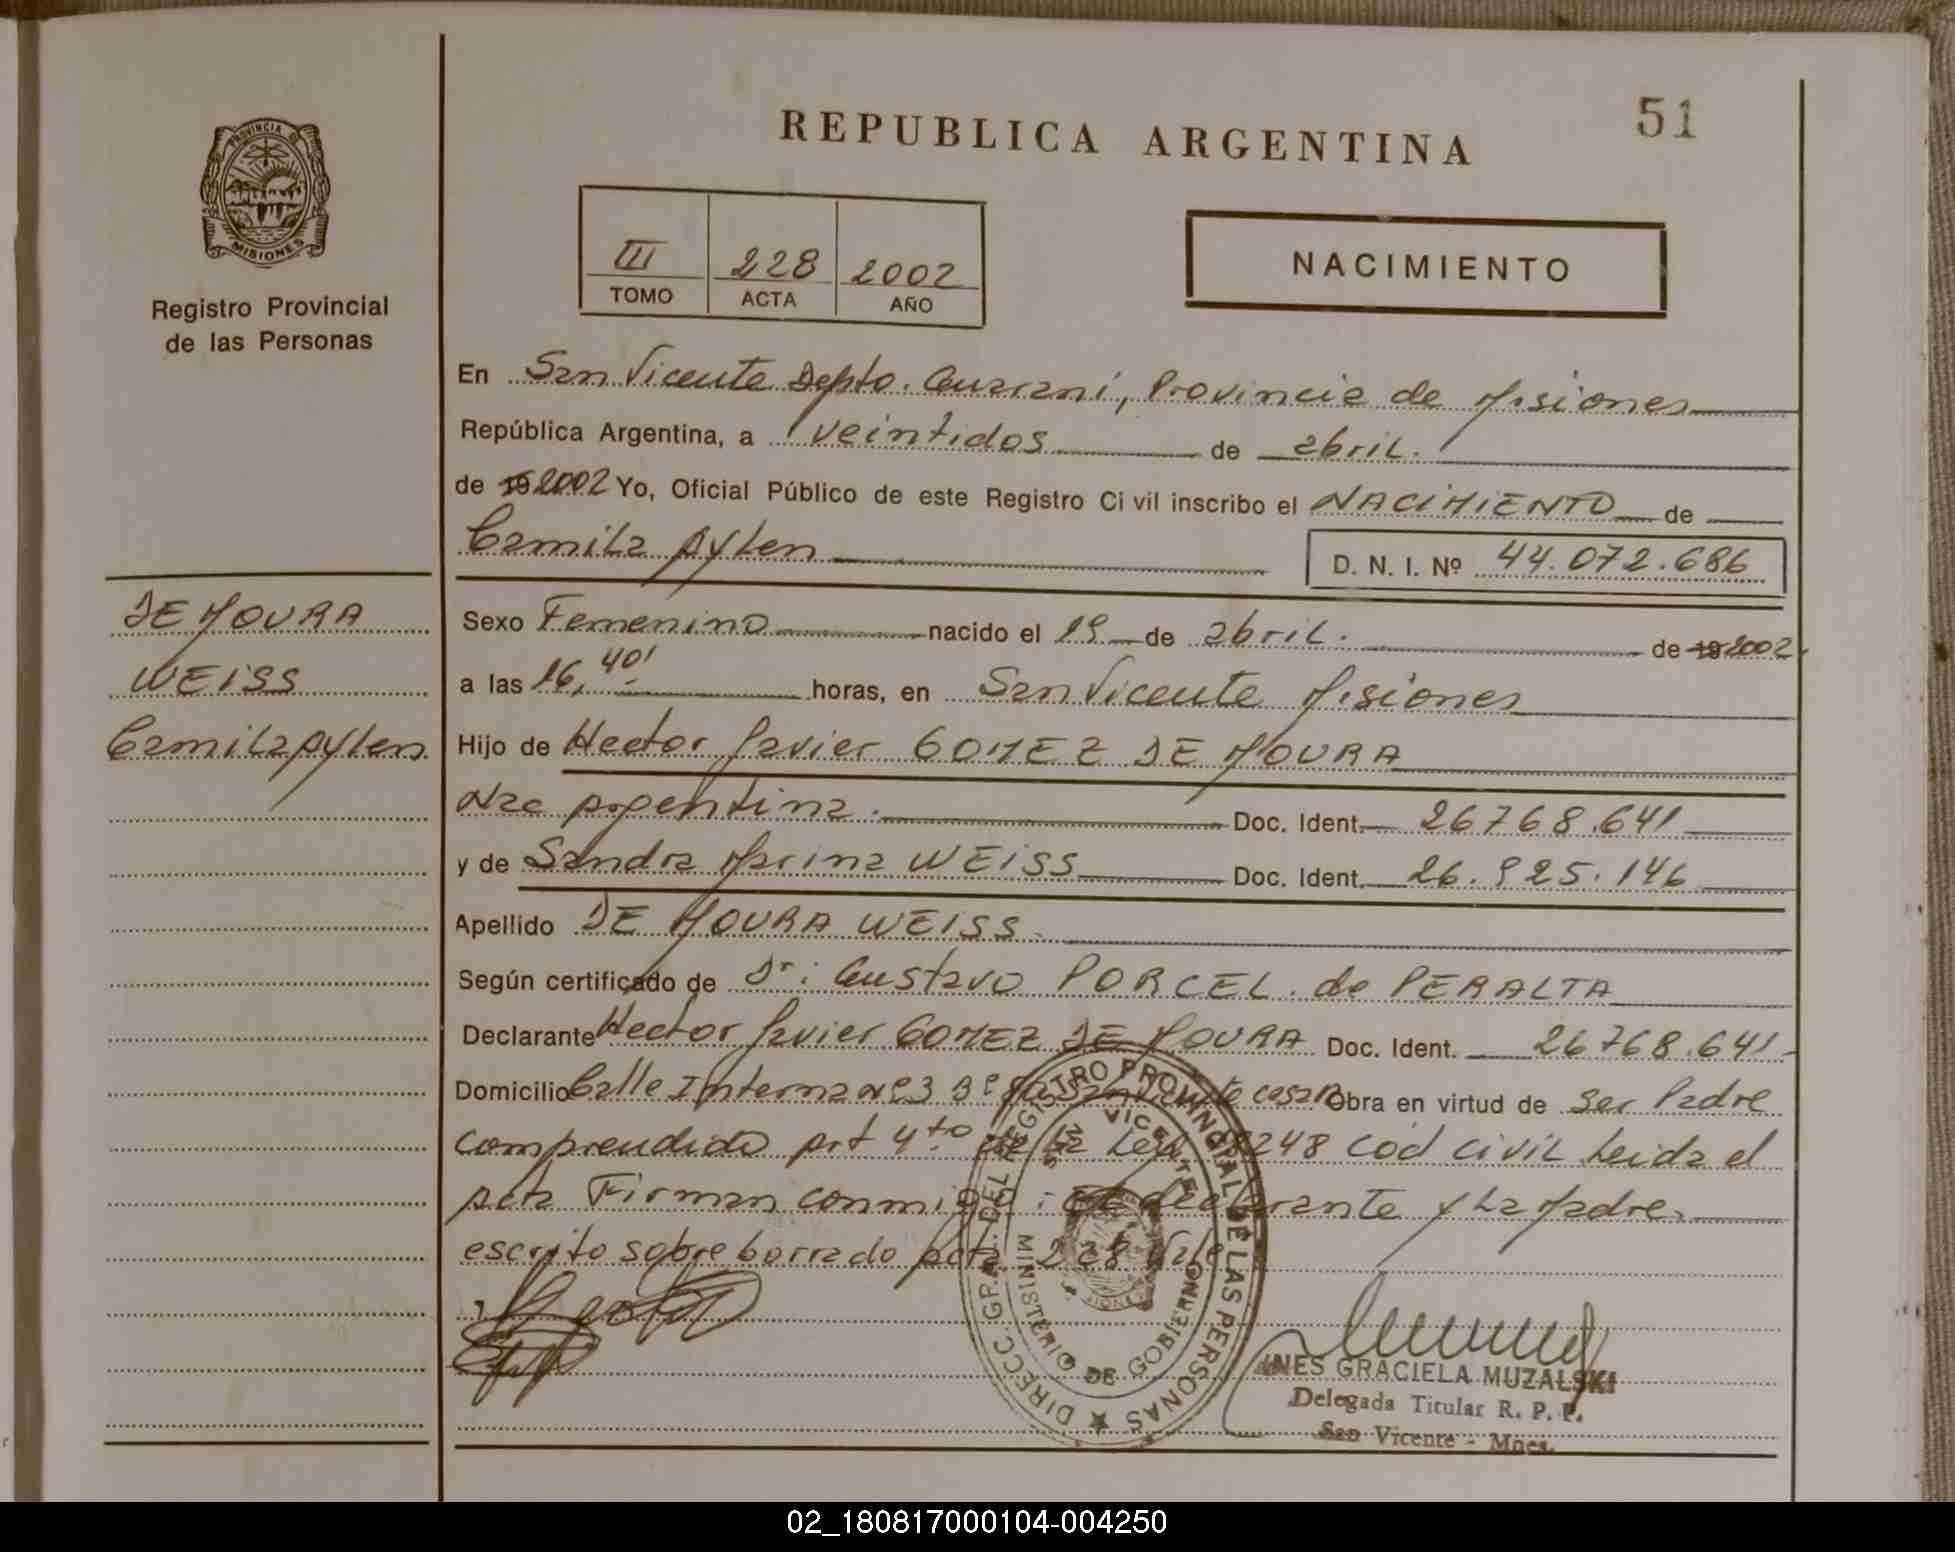 51
REPUBLICA ARGENTINA
PROVINCIA DE
MISIONES
Registro Provincial
de las Personas
III 228 2002
TOMO ACTA AÑO
NACIMIENTO
En San Vicente Depto. Guarani, Provincia de Misiones
República Argentina, a veintidos de abril.
de 19 2002 Yo, Oficial Público de este Registro Civil inscribo el NACIMIENTO de
Camila Aylen
D. N. I. Nº 44.072.686
DE MOURA
WEISS
Camila Aylen
Sexo Femenino nacido el 19 de abril. de 19 2002
a las 16,40' horas, en San Vicente Misiones
Hijo de Hector Javier GOMEZ DE MOURA
Nac Argentina. Doc. Ident. 26768.641
y de Sandra Marina WEISS Doc. Ident. 26.925.146
Apellido DE MOURA WEISS.
Según certificado de Dr: Gustavo PORCEL de PERALTA
Declarante Hector Javier GOMEZ DE MOURA Doc. Ident. 26768.641
Domicilio Calle Interna Nº3 Bº San Vicente casa Obra en virtud de ser Padre
comprendido Art 4to de la Ley 18248 Cod Civil Leida el
Acta Firman conmigo: El declarante y La Madre.
escrito sobre borrado Acta 228 Vale
DIRECC. GRAL. DEL REGISTRO PROVINCIAL DE LAS PERSONAS
SAN VICENTE
MINISTERIO DE GOBIERNO
INES GRACIELA MUZALSKI
Delegada Titular R. P. P.
San Vicente - Mnes.
02_180817000104-004250